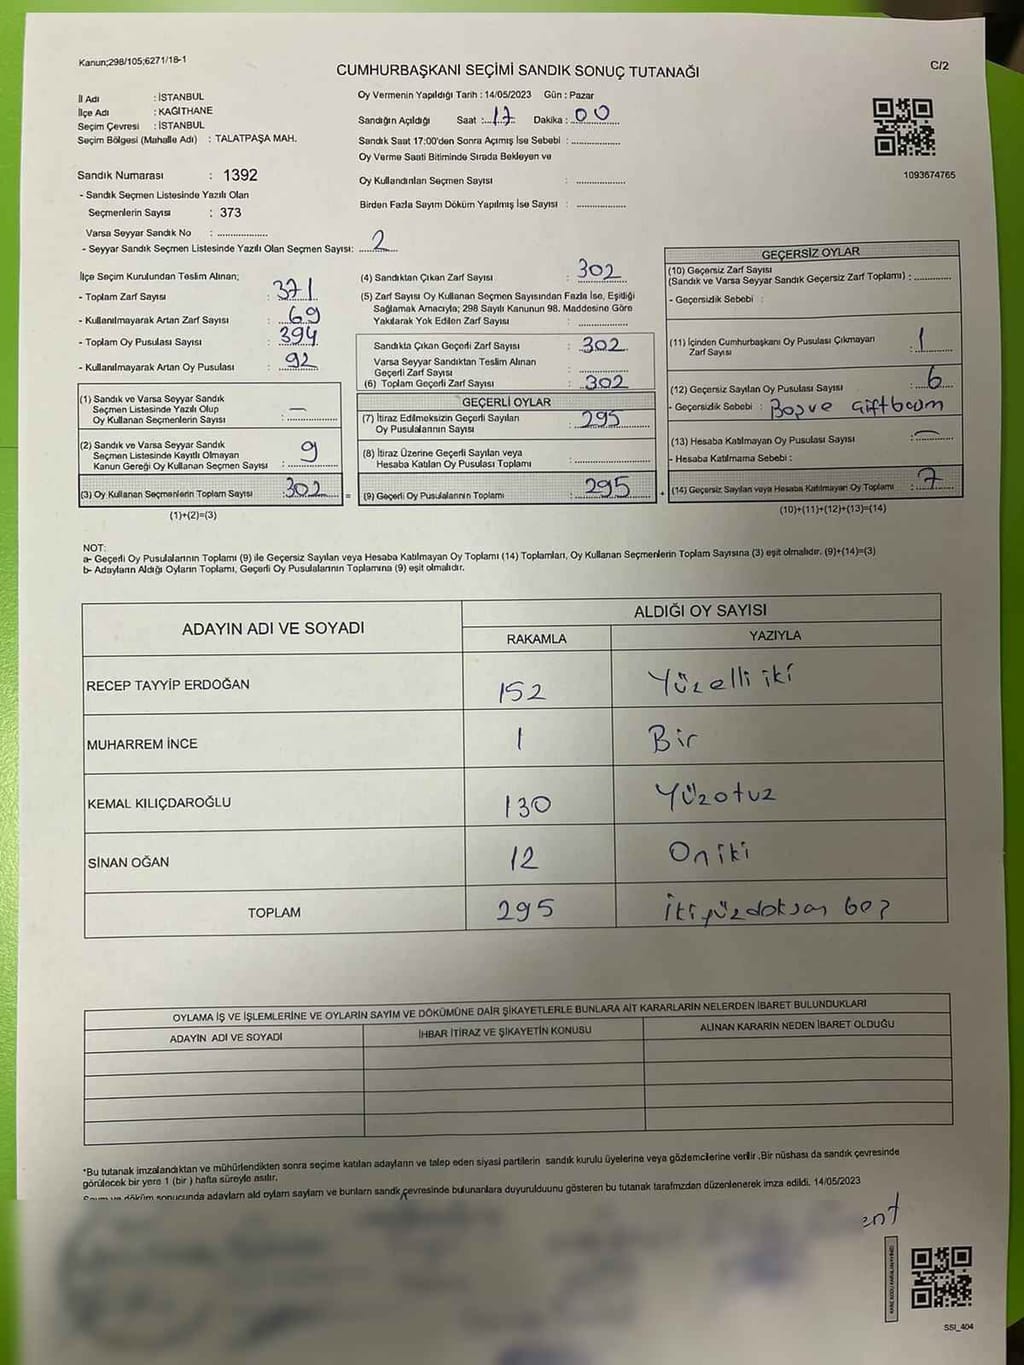 Kanun;298/105;6271/18-1
CUMHURBAŞKANI SEÇİMİ SANDIK SONUÇ TUTANAĞI
C/2
İl Adı : İSTANBUL
İlçe Adı : KAĞITHANE
Seçim Çevresi : İSTANBUL
Seçim Bölgesi (Mahalle Adı) : TALATPAŞA MAH.
Oy Vermenin Yapıldığı Tarih : 14/05/2023 Gün : Pazar
Sandığın Açıldığı Saat : 17 Dakika : 00
Sandık Saat 17:00'den Sonra Açımış İse Sebebi :
Oy Verme Saati Bitiminde Sırada Bekleyen ve
Oy Kullandırılan Seçmen Sayısı :
Birden Fazla Sayım Döküm Yapılmış İse Sayısı :
1093674765
Sandık Numarası : 1392
- Sandık Seçmen Listesinde Yazılı Olan
Seçmenlerin Sayısı : 373
Varsa Seyyar Sandık No :
- Seyyar Sandık Seçmen Listesinde Yazılı Olan Seçmen Sayısı: 2
İlçe Seçim Kurulundan Teslim Alınan;
- Toplam Zarf Sayısı : 371
- Kullanılmayarak Artan Zarf Sayısı : 69
- Toplam Oy Pusulası Sayısı : 394
- Kullanılmayarak Artan Oy Pusulası : 92
(1) Sandık ve Varsa Seyyar Sandık
Seçmen Listesinde Yazılı Olup
Oy Kullanan Seçmenlerin Sayısı : —
(2) Sandık ve Varsa Seyyar Sandık
Seçmen Listesinde Kayıtlı Olmayan
Kanun Gereği Oy Kullanan Seçmen Sayısı : 9
(3) Oy Kullanan Seçmenlerin Toplam Sayısı : 302 =
(1)+(2)=(3)
(4) Sandıktan Çıkan Zarf Sayısı : 302
(5) Zarf Sayısı Oy Kullanan Seçmen Sayısından Fazla İse, Eşidiği
Sağlamak Amacıyla; 298 Sayılı Kanunun 98. Maddesine Göre
Yakılarak Yok Edilen Zarf Sayısı :
Sandıkta Çıkan Geçerli Zarf Sayısı : 302
Varsa Seyyar Sandıktan Teslim Alınan
Geçerli Zarf Sayısı :
(6) Toplam Geçerli Zarf Sayısı : 302
GEÇERLİ OYLAR
(7) İtiraz Edilmeksizin Geçerli Sayılan
Oy Pusulalarının Sayısı : 295
(8) İtiraz Üzerine Geçerli Sayılan veya
Hesaba Katılan Oy Pusulası Toplamı :
(9) Geçerli Oy Pusulalarının Toplamı : 295 +
GEÇERSİZ OYLAR
(10) Geçersiz Zarf Sayısı
(Sandık ve Varsa Seyyar Sandık Geçersiz Zarf Toplamı) :
- Geçersizlik Sebebi :
(11) İçinden Cumhurbaşkanı Oy Pusulası Çıkmayan
Zarf Sayısı : 1
(12) Geçersiz Sayılan Oy Pusulası Sayısı : 6
- Geçersizlik Sebebi : Boş ve
(13) Hesaba Katılmayan Oy Pusulası Sayısı : —
- Hesaba Katılmama Sebebi :
(14) Geçersiz Sayılan veya Hesaba Katılmayan Oy Toplamı : 7
(10)+(11)+(12)+(13)=(14)
NOT:
a- Geçerli Oy Pusulalarının Toplamı (9) ile Geçersiz Sayılan veya Hesaba Katılmayan Oy Toplamı (14) Toplamları, Oy Kullanan Seçmenlerin Toplam Sayısına (3) eşit olmalıdır. (9)+(14)=(3)
b- Adayların Aldığı Oyların Toplamı, Geçerli Oy Pusulalarının Toplamına (9) eşit olmalıdır.
ADAYIN ADI VE SOYADI
ALDIĞI OY SAYISI
RAKAMLA YAZIYLA
RECEP TAYYİP ERDOĞAN 152 Yüzelli iki
MUHARREM İNCE 1 Bir
KEMAL KILIÇDAROĞLU 130 Yüzotuz
SİNAN OĞAN 12 Oniki
TOPLAM 295 İkiyüzdoksan beş
OYLAMA İŞ VE İŞLEMLERİNE VE OYLARIN SAYIM VE DÖKÜMÜNE DAİR ŞİKAYETLERLE BUNLARA AİT KARARLARIN NELERDEN İBARET BULUNDUKLARI
ADAYIN ADI VE SOYADI İHBAR İTİRAZ VE ŞİKAYETİN KONUSU ALINAN KARARIN NEDEN İBARET OLDUĞU
*Bu tutanak imzalandıktan ve mühürlendikten sonra seçime katılan adayların ve talep eden siyasi partilerin sandık kurulu üyelerine veya gözlemcilerine verilir .Bir nüshası da sandık çevresinde
görülecek bir yere 1 (bir ) hafta süreyle asılır.
Sayım ve döküm sonucunda adayların ald oyların sayların ve bunların sandk çevresinde bulunanlara duyurulduunu gösteren bu tutanak tarafmzdan düzenlenerek imza edildi. 14/05/2023
SSI_404